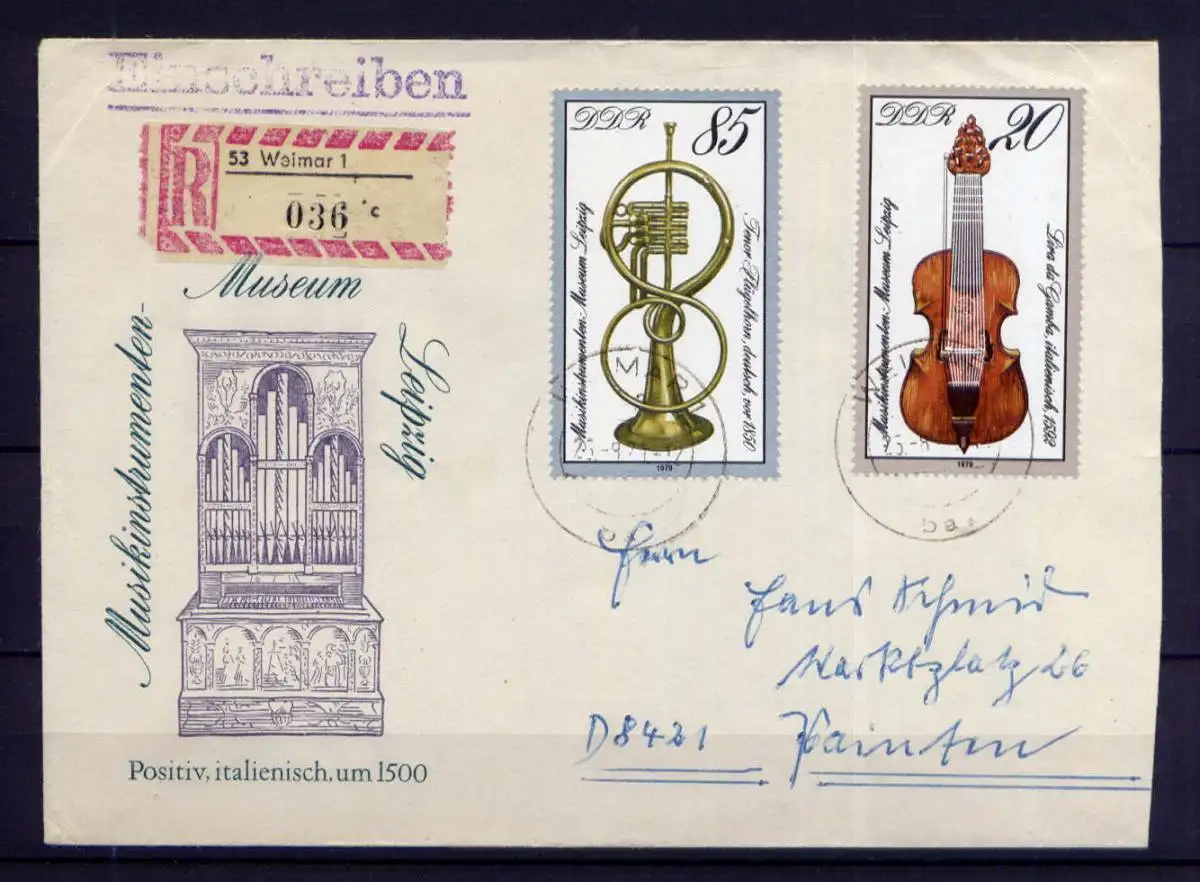 Einschreiben
R
53 Weimar 1
036 c
Museum
Musikinstrumenten-
Leipzig
Positiv, italienisch, um 1500
DDR 85
Musikinstrumenten-Museum Leipzig
Tenor-Flügelhorn, deutsch, vor 1850
1979
DDR 20
Musikinstrumenten-Museum Leipzig
Lira da Gamba, italienisch, 1592
1979
Herrn
Hans Schmid
Marktplatz 26
D8421 Painten